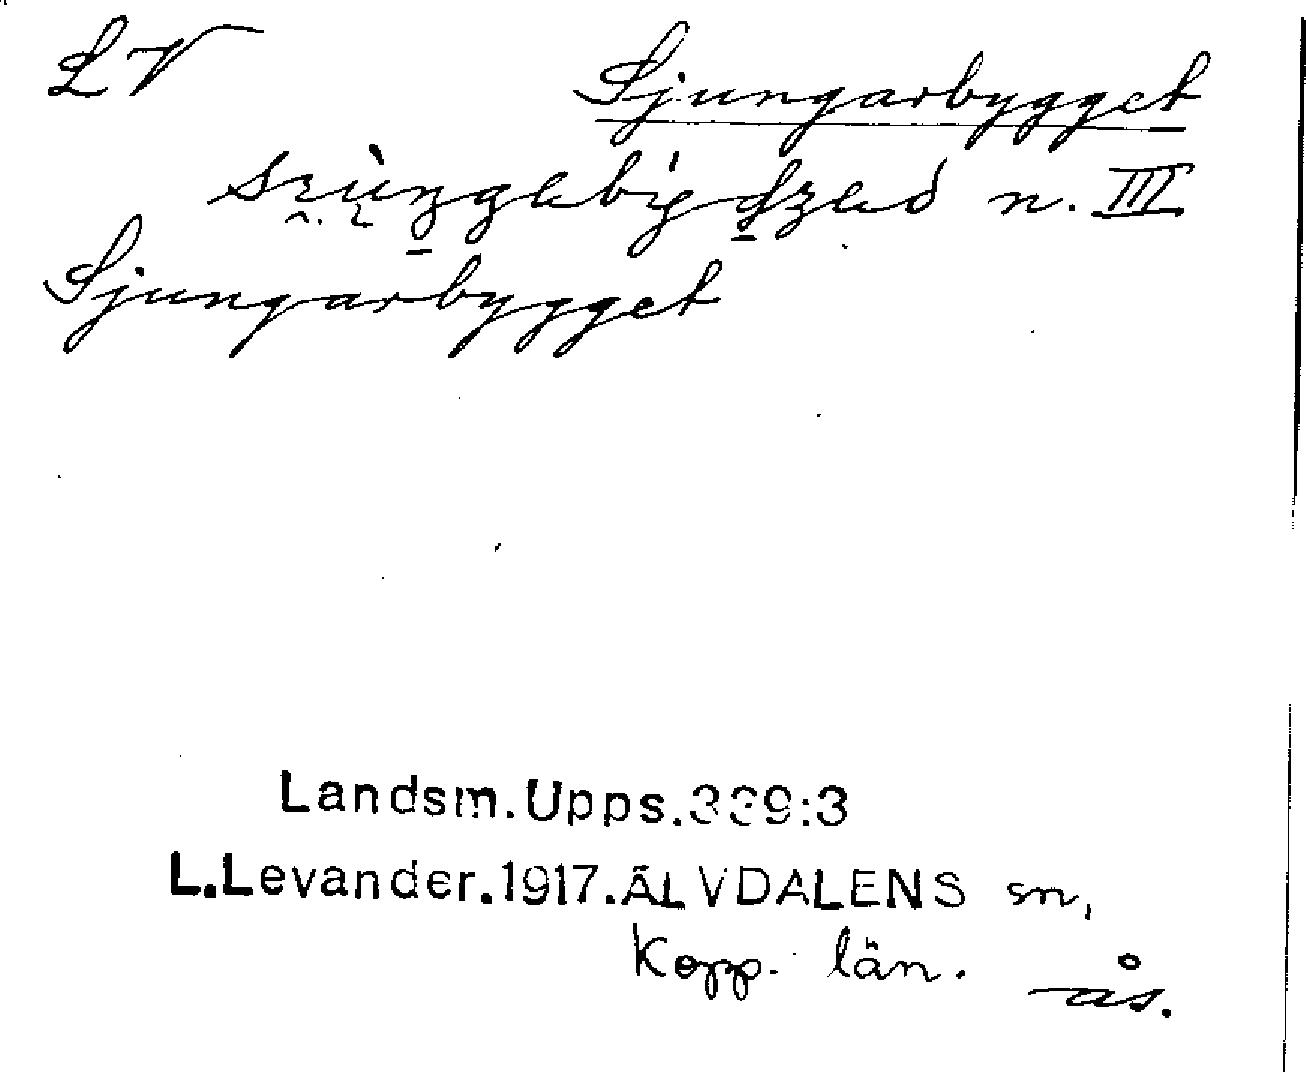 LV
Sjungarbygget
n. III
Sjungarbygget
Landsm.Upps.339:3
L.Levander.1917.ÄLVDALENS sn,
Kopp. län.
ås.